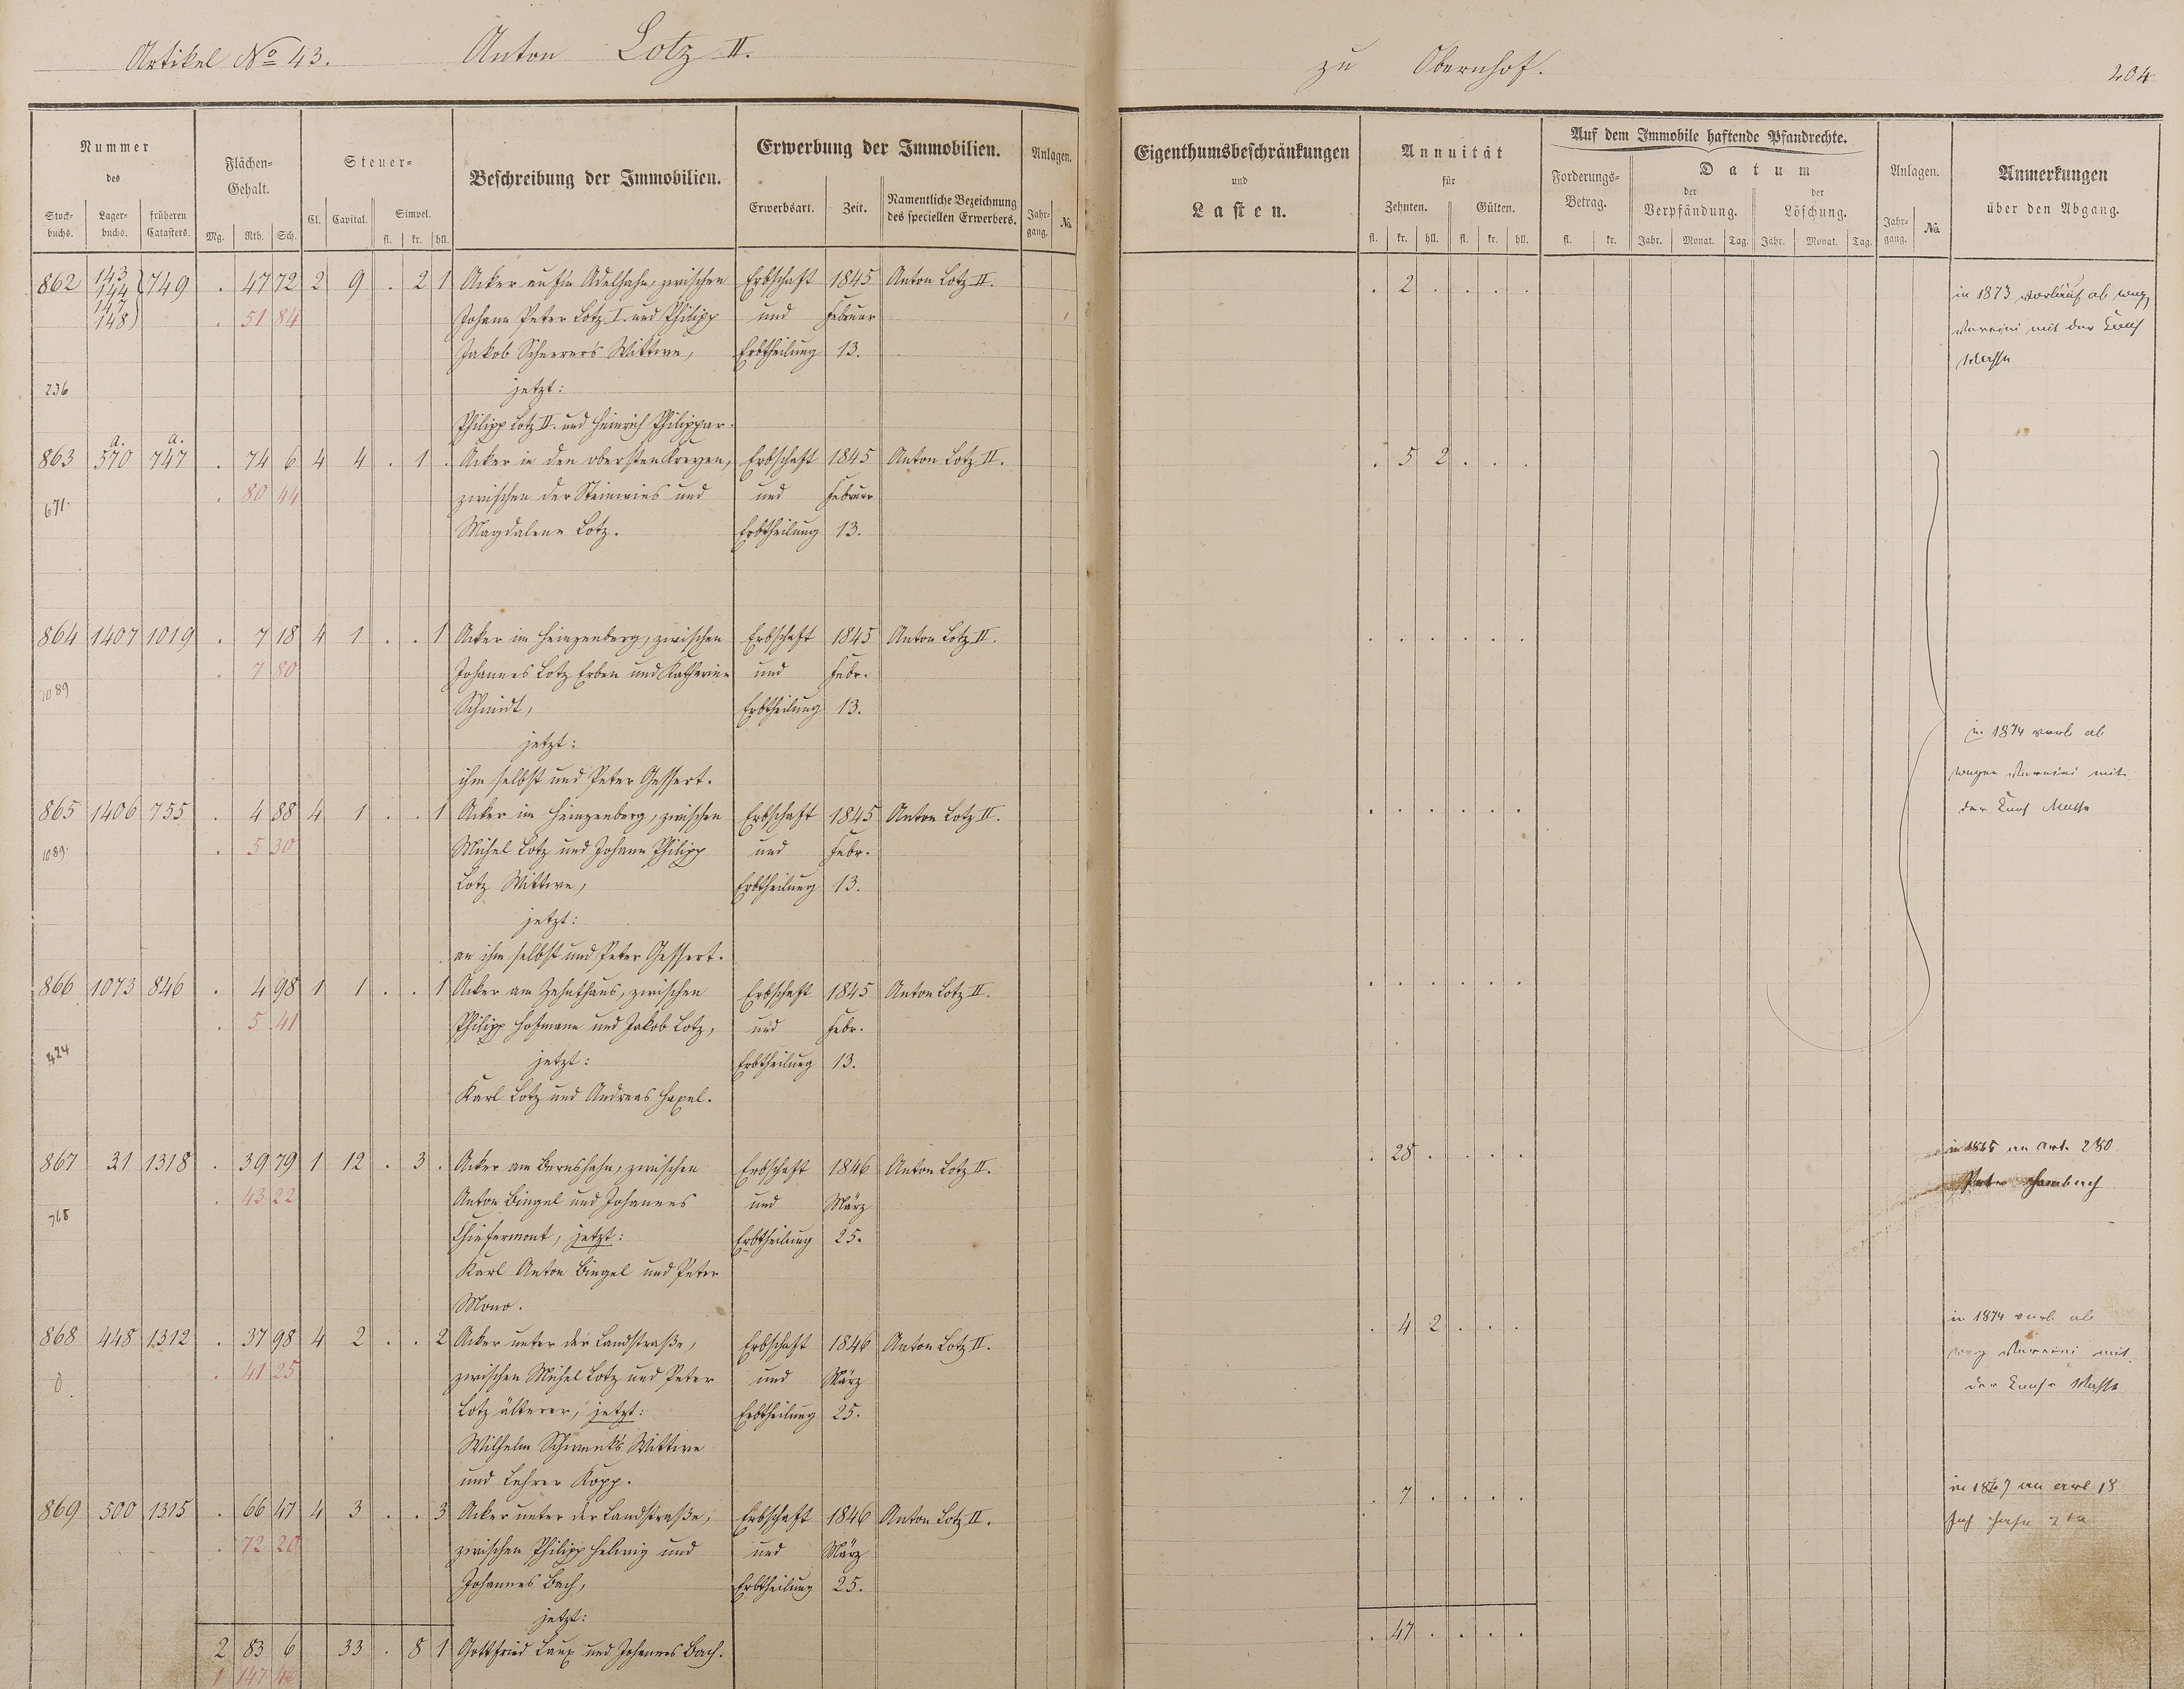 Artikel No 43. Anton Lotz II. zu Obernhof. 204
Nummer des
Stock-buchs. Lager-buchs. früheren Catasters.
Flächen-Gehalt.
Mg. Rth. Sch.
Steuer-
Cl. Capital. Simpel.
fl. kr. hll.
Beschreibung der Immobilien.
Erwerbung der Immobilien.
Erwerbsart. Zeit. Namentliche Bezeichnung des speciellen Erwerbers.
Anlagen.
Jahr-gang. No.
Eigenthumsbeschränkungen und Lasten.
Annuität für
Zehnten. Gülten.
fl. kr. hll. fl. kr. hll.
Auf dem Immobile haftende Pfandrechte.
Forderungs-Betrag.
fl. kr.
Datum
der Verpfändung. der Löschung.
Jahr. Monat. Tag. Jahr. Monat. Tag.
Anlagen.
Jahr-gang. No.
Anmerkungen über den Abgang.
862 143 749 . 47 72 2 9 . 2 1 Acker auf'm Adelhahn, zwischen Erbschaft 1845 Anton Lotz II. . 2 . . . .
144
147
148
. 51 84 Johann Peter Lotz I. und Philipp und Februar
Jakob Scherer's Wittwe, Erbtheilung 13.
236 jetzt:
Philipp Lotz II. und Heinrich Philippar.
in 1873 vorläuf ab weg
Vereini mit der Kauf
Masse
863 a. 570 a. 747 . 74 6 4 4 . 1 . Acker in den obersten Kreyen, Erbschaft 1845 Anton Lotz II. . 5 2 . . .
. 80 44 zwischen der Steinwies und und Februar
671. Magdalena Lotz. Erbtheilung 13.
864 1407 1019 . 7 18 4 1 . . 1 Acker im Heinzenberg, zwischen Erbschaft 1845 Anton Lotz II. . . . . . .
. 7 80 Johannes Lotz Erben und Katharina und Febr.
1089 Schmidt, Erbtheilung 13.
jetzt:
ihm selbst und Peter Gessert.
in 1874 vorl ab
wegen Vereini mit
der Kauf Masse
865 1406 755 . 4 88 4 1 . . 1 Acker im Heinzenberg, zwischen Erbschaft 1845 Anton Lotz II. . . . . . .
1089. . 5 30 Michel Lotz und Johann Philipp und Febr.
Lotz Wittwe, Erbtheilung 13.
jetzt:
an ihm selbst und Peter Gessert.
866 1073 846 . 4 98 1 1 . . 1 Acker am Zehnthaus, zwischen Erbschaft 1845 Anton Lotz II. . . . . . .
. 5 41 Philipp Hofmann und Jakob Lotz, und Febr.
424 jetzt: Erbtheilung 13.
Karl Lotz und Andreas Hexel.
867 31 1318 . 39 79 1 12 . 3 . Acker am Bernshahn, zwischen Erbschaft 1846 Anton Lotz II. . 28 . . . . in 1865 an Art. 280
. 43 22 Anton Bingel und Johannes und März
765 jetzt: Erbtheilung 25.
Karl Anton Bingel und Peter
Mono.
868 448 1312 . 37 98 4 2 . . 2 Acker unter der Landstraße, Erbschaft 1846 Anton Lotz II. . 4 2 . . . in 1874 vorl ab
. 41 25 zwischen Michel Lotz und Peter und März weg Vereini mit
Lotz älterer, jetzt: Erbtheilung 25. der Kauf Masse
Wilhelm Schwenk's Wittwe
und Lehrer Kopp.
869 500 1315 . 66 47 4 3 . . 3 Acker unter der Landstraße, Erbschaft 1846 Anton Lotz II. . 7 . . . . in 1867 an
. 72 20 zwischen Philipp Helwig und und März
Johannes Bach, Erbtheilung 25.
jetzt:
2 83 6 33 . 8 1 Gottfried Laux und Johannes Bach. . 47 . . . .
1 147 46